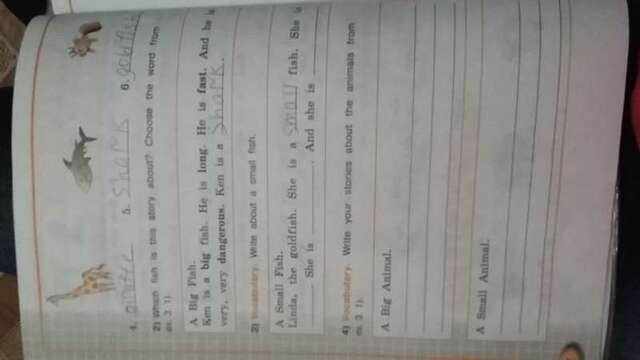 4. giraffe 5. shark 6. goldfish
2) Which fish is this story about? Choose the word from
ex. 3. 1).
A Big Fish.
Ken is a big fish. He is long. He is fast. And he is
very, very dangerous. Ken is a shark.
3) Vocabulary. Write about a small fish.
A Small Fish.
Linda, the goldfish. She is a small fish. She is
. She is . And she is
4) Vocabulary. Write your stories about the animals from
ex. 3 1).
A Big Animal.
A Small Animal.